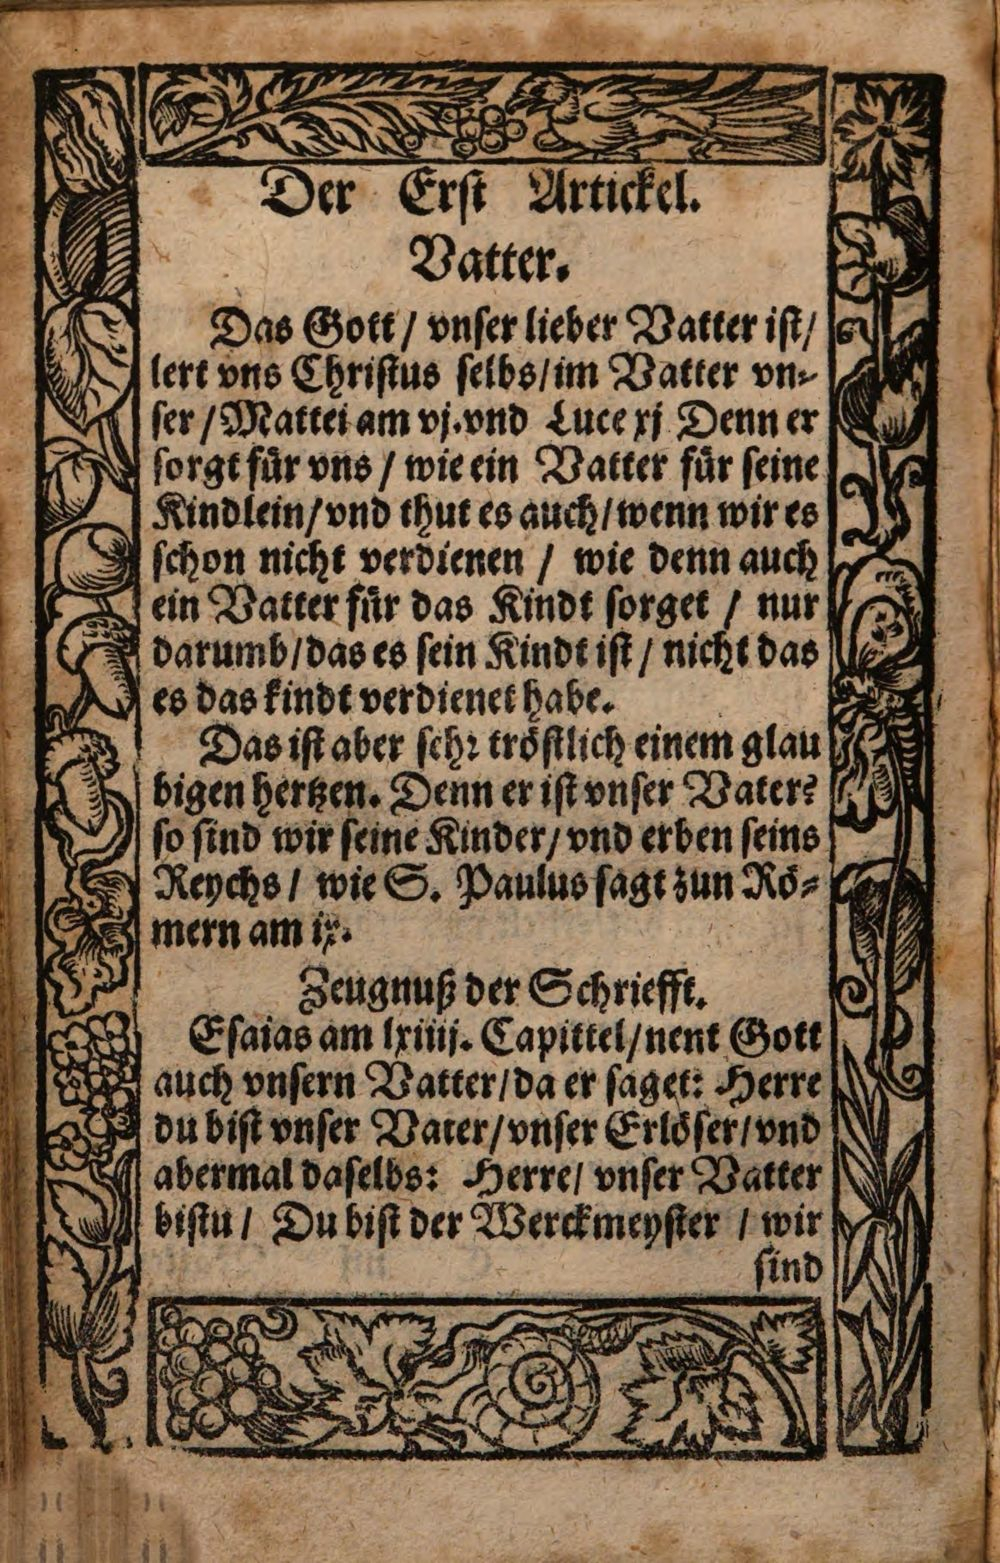 Der Erst Artickel.
Vatter.
Das Gott / vnser lieber Vatter ist /
lert vns Christus selbs / im Vatter vn⸗
ser / Mattei am vj. vnd Luce xj Denn er
sorgt für vns / wie ein Vatter für seine
Kindlein / vnd thut es auch / wenn wir es
schon nicht verdienen / wie denn auch
ein Vatter für das Kindt sorget / nur
darumb / das es sein Kindt ist / nicht das
es das kindt verdienet habe.
Das ist aber sehr tröstlich einem glau
bigen hertzen. Denn er ist vnser Vater?
so sind wir seine Kinder / vnd erben seins
Reychs / wie S. Paulus sagt zun Rö⸗
mern am ix.
Zeugnuß der Schriefft.
Esaias am lxiiij. Capittel / nent Gott
auch vnsern Vatter / da er saget: Herre
du bist vnser Vater / vnser Erlöser / vnd
abermal daselbs: Herre / vnser Vatter
bistu / Du bist der Werckmeyster / wir
sind